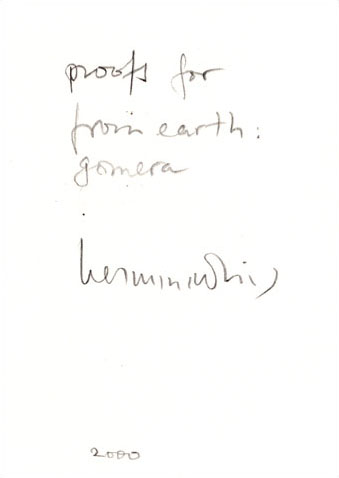 proofs for
from earth:
gomera
herman de vries
2000